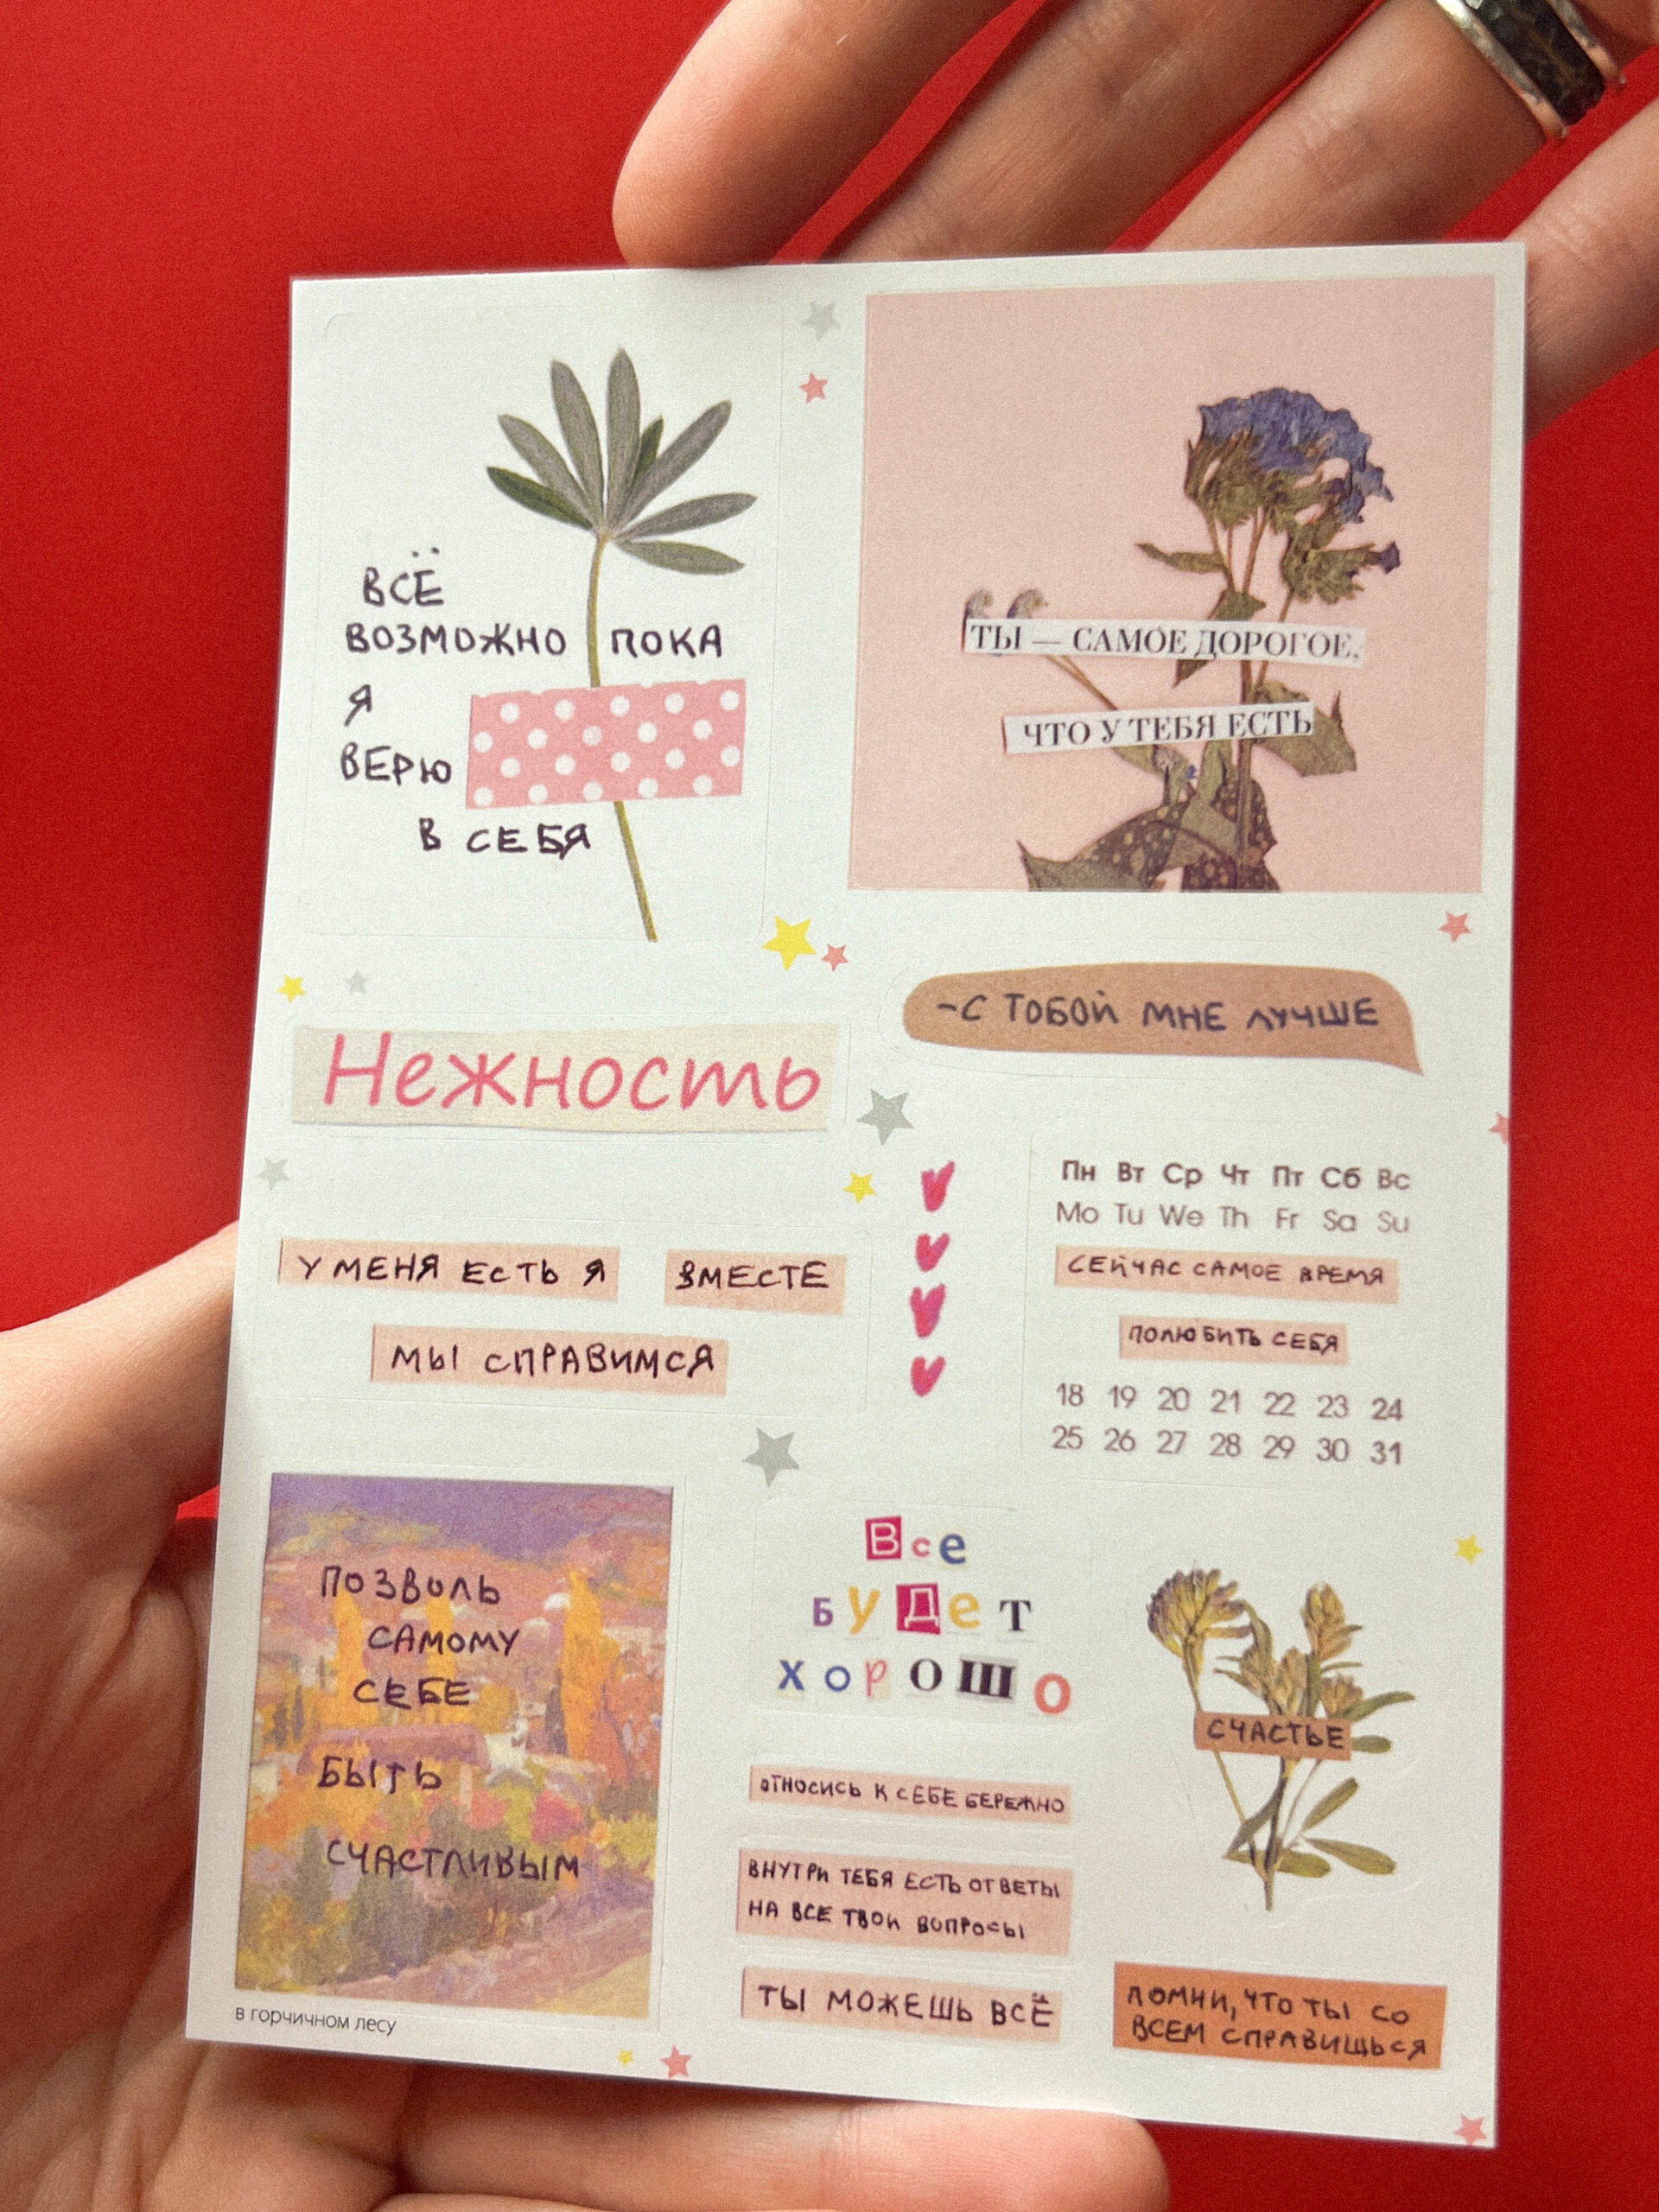 ВСЁ
ВОЗМОЖНО ПОКА
Я
ВЕРЮ
В СЕБЯ
ТЫ — САМОЕ ДОРОГОЕ,
ЧТО У ТЕБЯ ЕСТЬ
-С ТОБОЙ МНЕ ЛУЧШЕ
Нежность
У МЕНЯ ЕСТЬ Я ВМЕСТЕ
МЫ СПРАВИМСЯ
Пн Вт Ср Чт Пт Сб Вс
Mo Tu We Th Fr Sa Su
СЕЙЧАС САМОЕ ВРЕМЯ
ПОЛЮБИТЬ СЕБЯ
18 19 20 21 22 23 24
25 26 27 28 29 30 31
ПОЗВОЛЬ
САМОМУ
СЕБЕ
БЫТЬ
СЧАСТЛИВЫМ
в горчичном лесу
Все
будет
хорошо
ОТНОСИСЬ К СЕБЕ БЕРЕЖНО
ВНУТРИ ТЕБЯ ЕСТЬ ОТВЕТЫ
НА ВСЕ ТВОИ ВОПРОСЫ
ТЫ МОЖЕШЬ ВСЁ
СЧАСТЬЕ
ПОМНИ, ЧТО ТЫ СО
ВСЕМ СПРАВИШЬСЯ